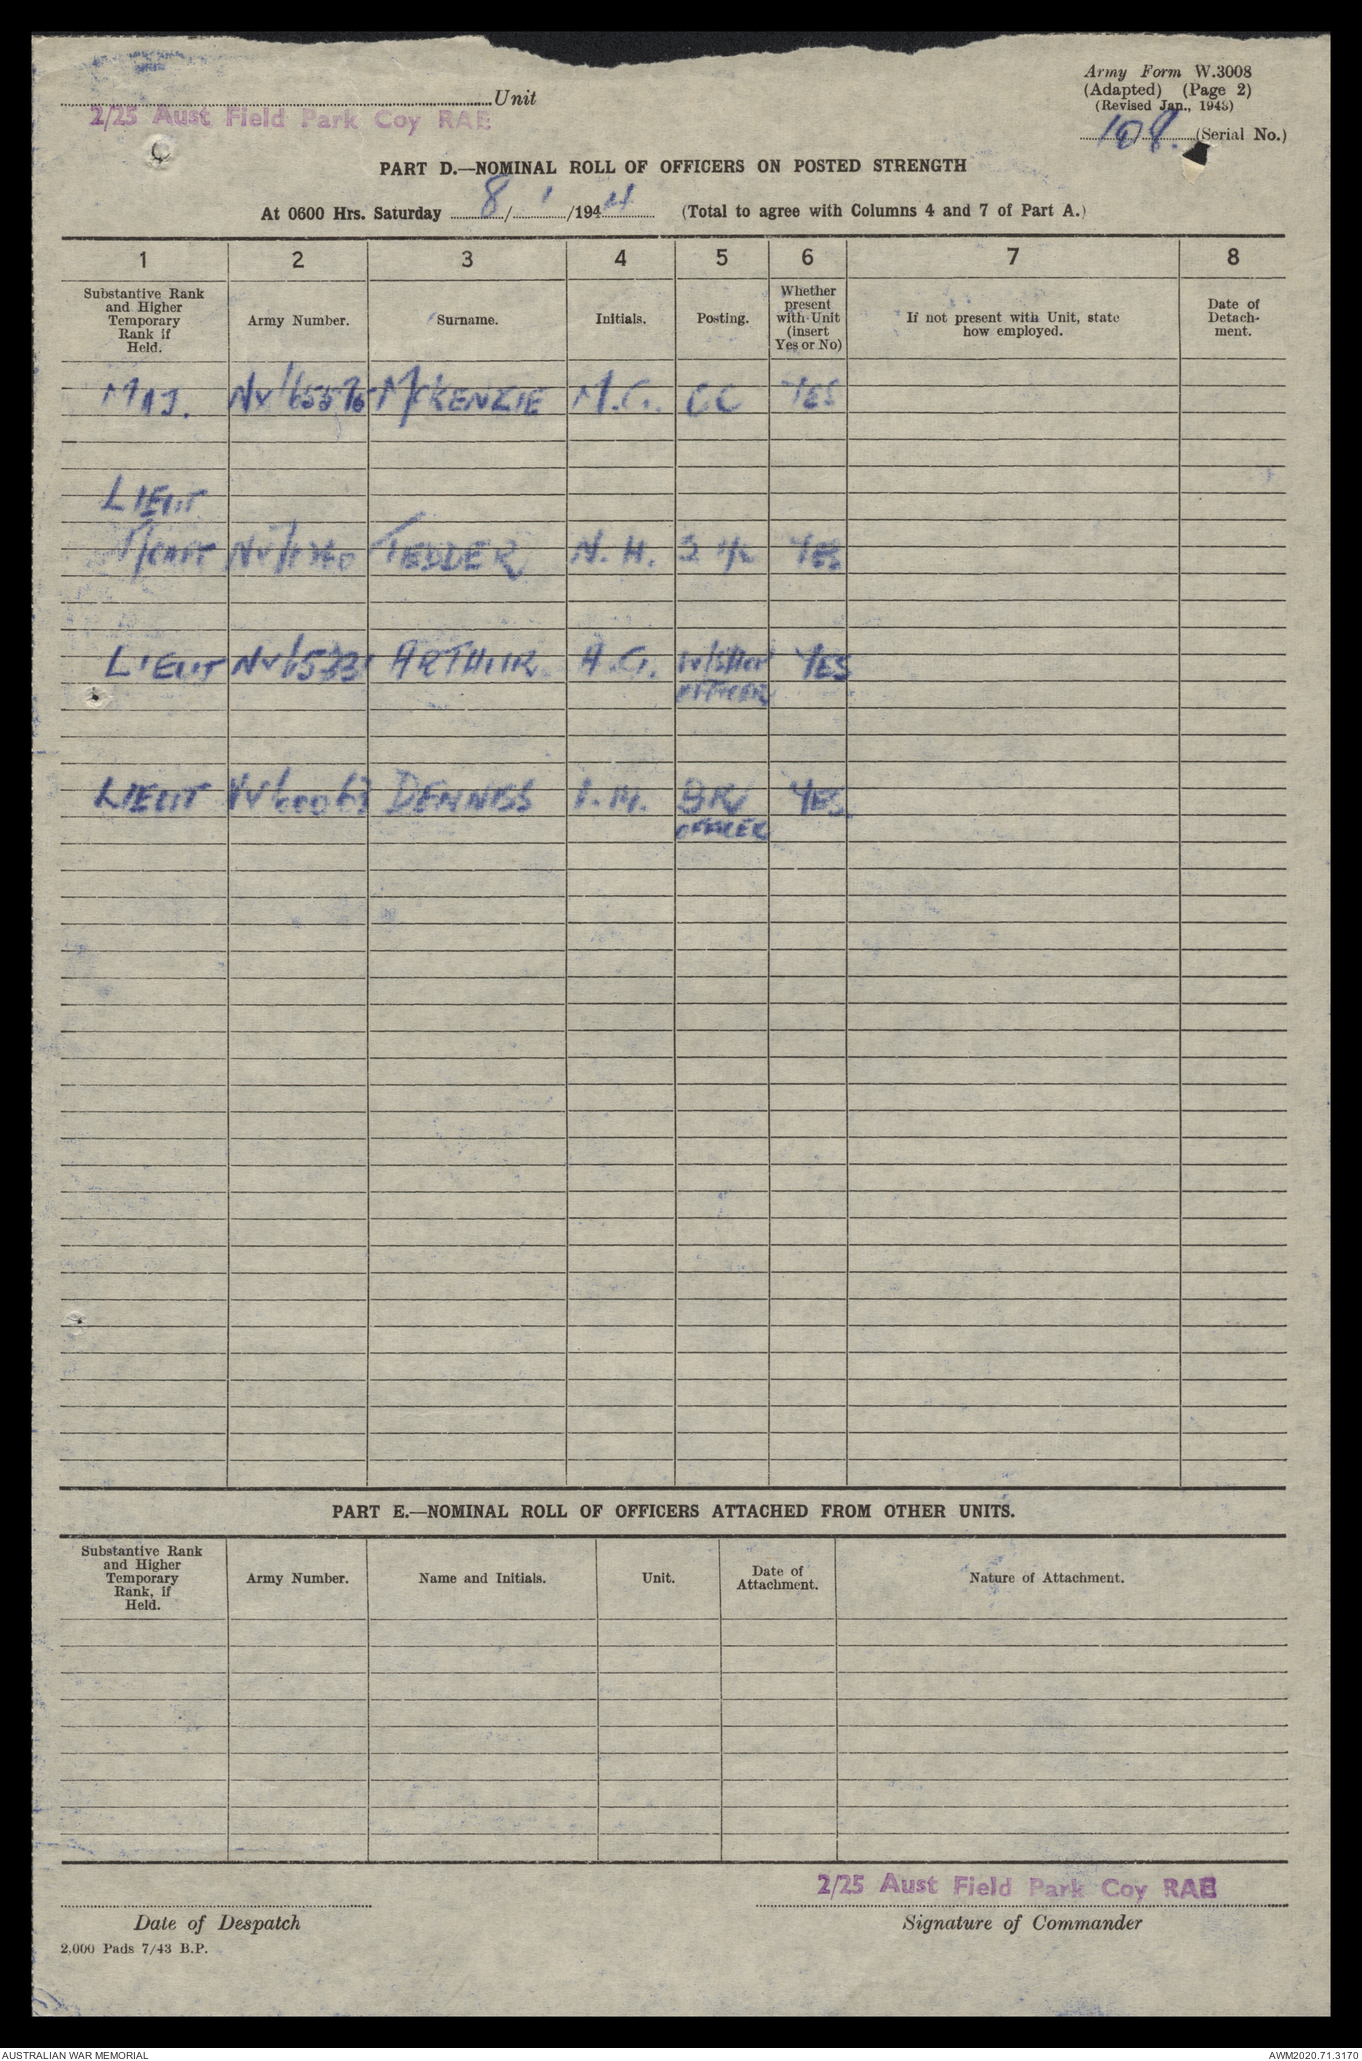 Army Form W.3008
(Adapted) (Page 2)
(Revised Jan., 1943)
108. (Serial No.)
Unit
2/25 Aust Field Park Coy RAE
PART D.—NOMINAL ROLL OF OFFICERS ON POSTED STRENGTH
At 0600 Hrs. Saturday 8/1/1944 (Total to agree with Columns 4 and 7 of Part A.)
1 2 3 4 5 6 7 8
Substantive Rank and Higher Temporary Rank if Held. Army Number. Surname. Initials. Posting. Whether present with Unit (insert Yes or No) If not present with Unit, state how employed. Date of Detach-ment.
MAJ. McKENZIE M.G. OC YES
LIEUT
T/CAPT TEDDER N.H. 2 I/C YES
LIEUT ARTHUR A.G. W/SHOP YES
OFFICER
LIEUT DENNISS I.M. BR/ YES.
OFFICER
PART E.—NOMINAL ROLL OF OFFICERS ATTACHED FROM OTHER UNITS.
Substantive Rank and Higher Temporary Rank, if Held. Army Number. Name and Initials. Unit. Date of Attachment. Nature of Attachment.
2/25 Aust Field Park Coy RAE
Date of Despatch Signature of Commander
2,000 Pads 7/43 B.P.
AUSTRALIAN WAR MEMORIAL AWM2020.71.3170